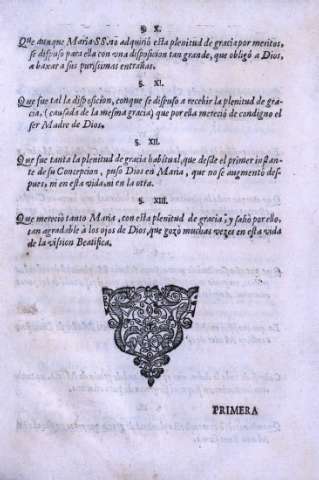 §. X.
Que aunque Maria SS. no adquiriò esta plenitud de gracia por meritos,
se dispuso para ella con una disposicion tan grande, que obligò a Dios,
a baxar a sus purissimas entrañas.
§. XI.
Que fue tal la disposicion, con que se dispuso a recebir la plenitud de gra-
cia, (causada de la mesma gracia) que por ella mereciò de condigno el
ser Madre de Dios.
§. XII.
Que fue tanta la plenitud de gracia habitual, que desde el primer instan-
te de su Concepcion, puso Dios en Maria, que no se augmentò des-
pues, ni en esta vida, ni en la otra.
§. XIII.
Que mereciò tanto Maria, con esta plenitud de gracia, y saliò por ello,
tan agradable à los ojos de Dios, que gozò muchas vezes en esta vida
de la vision Beatifica.
PRIMERA